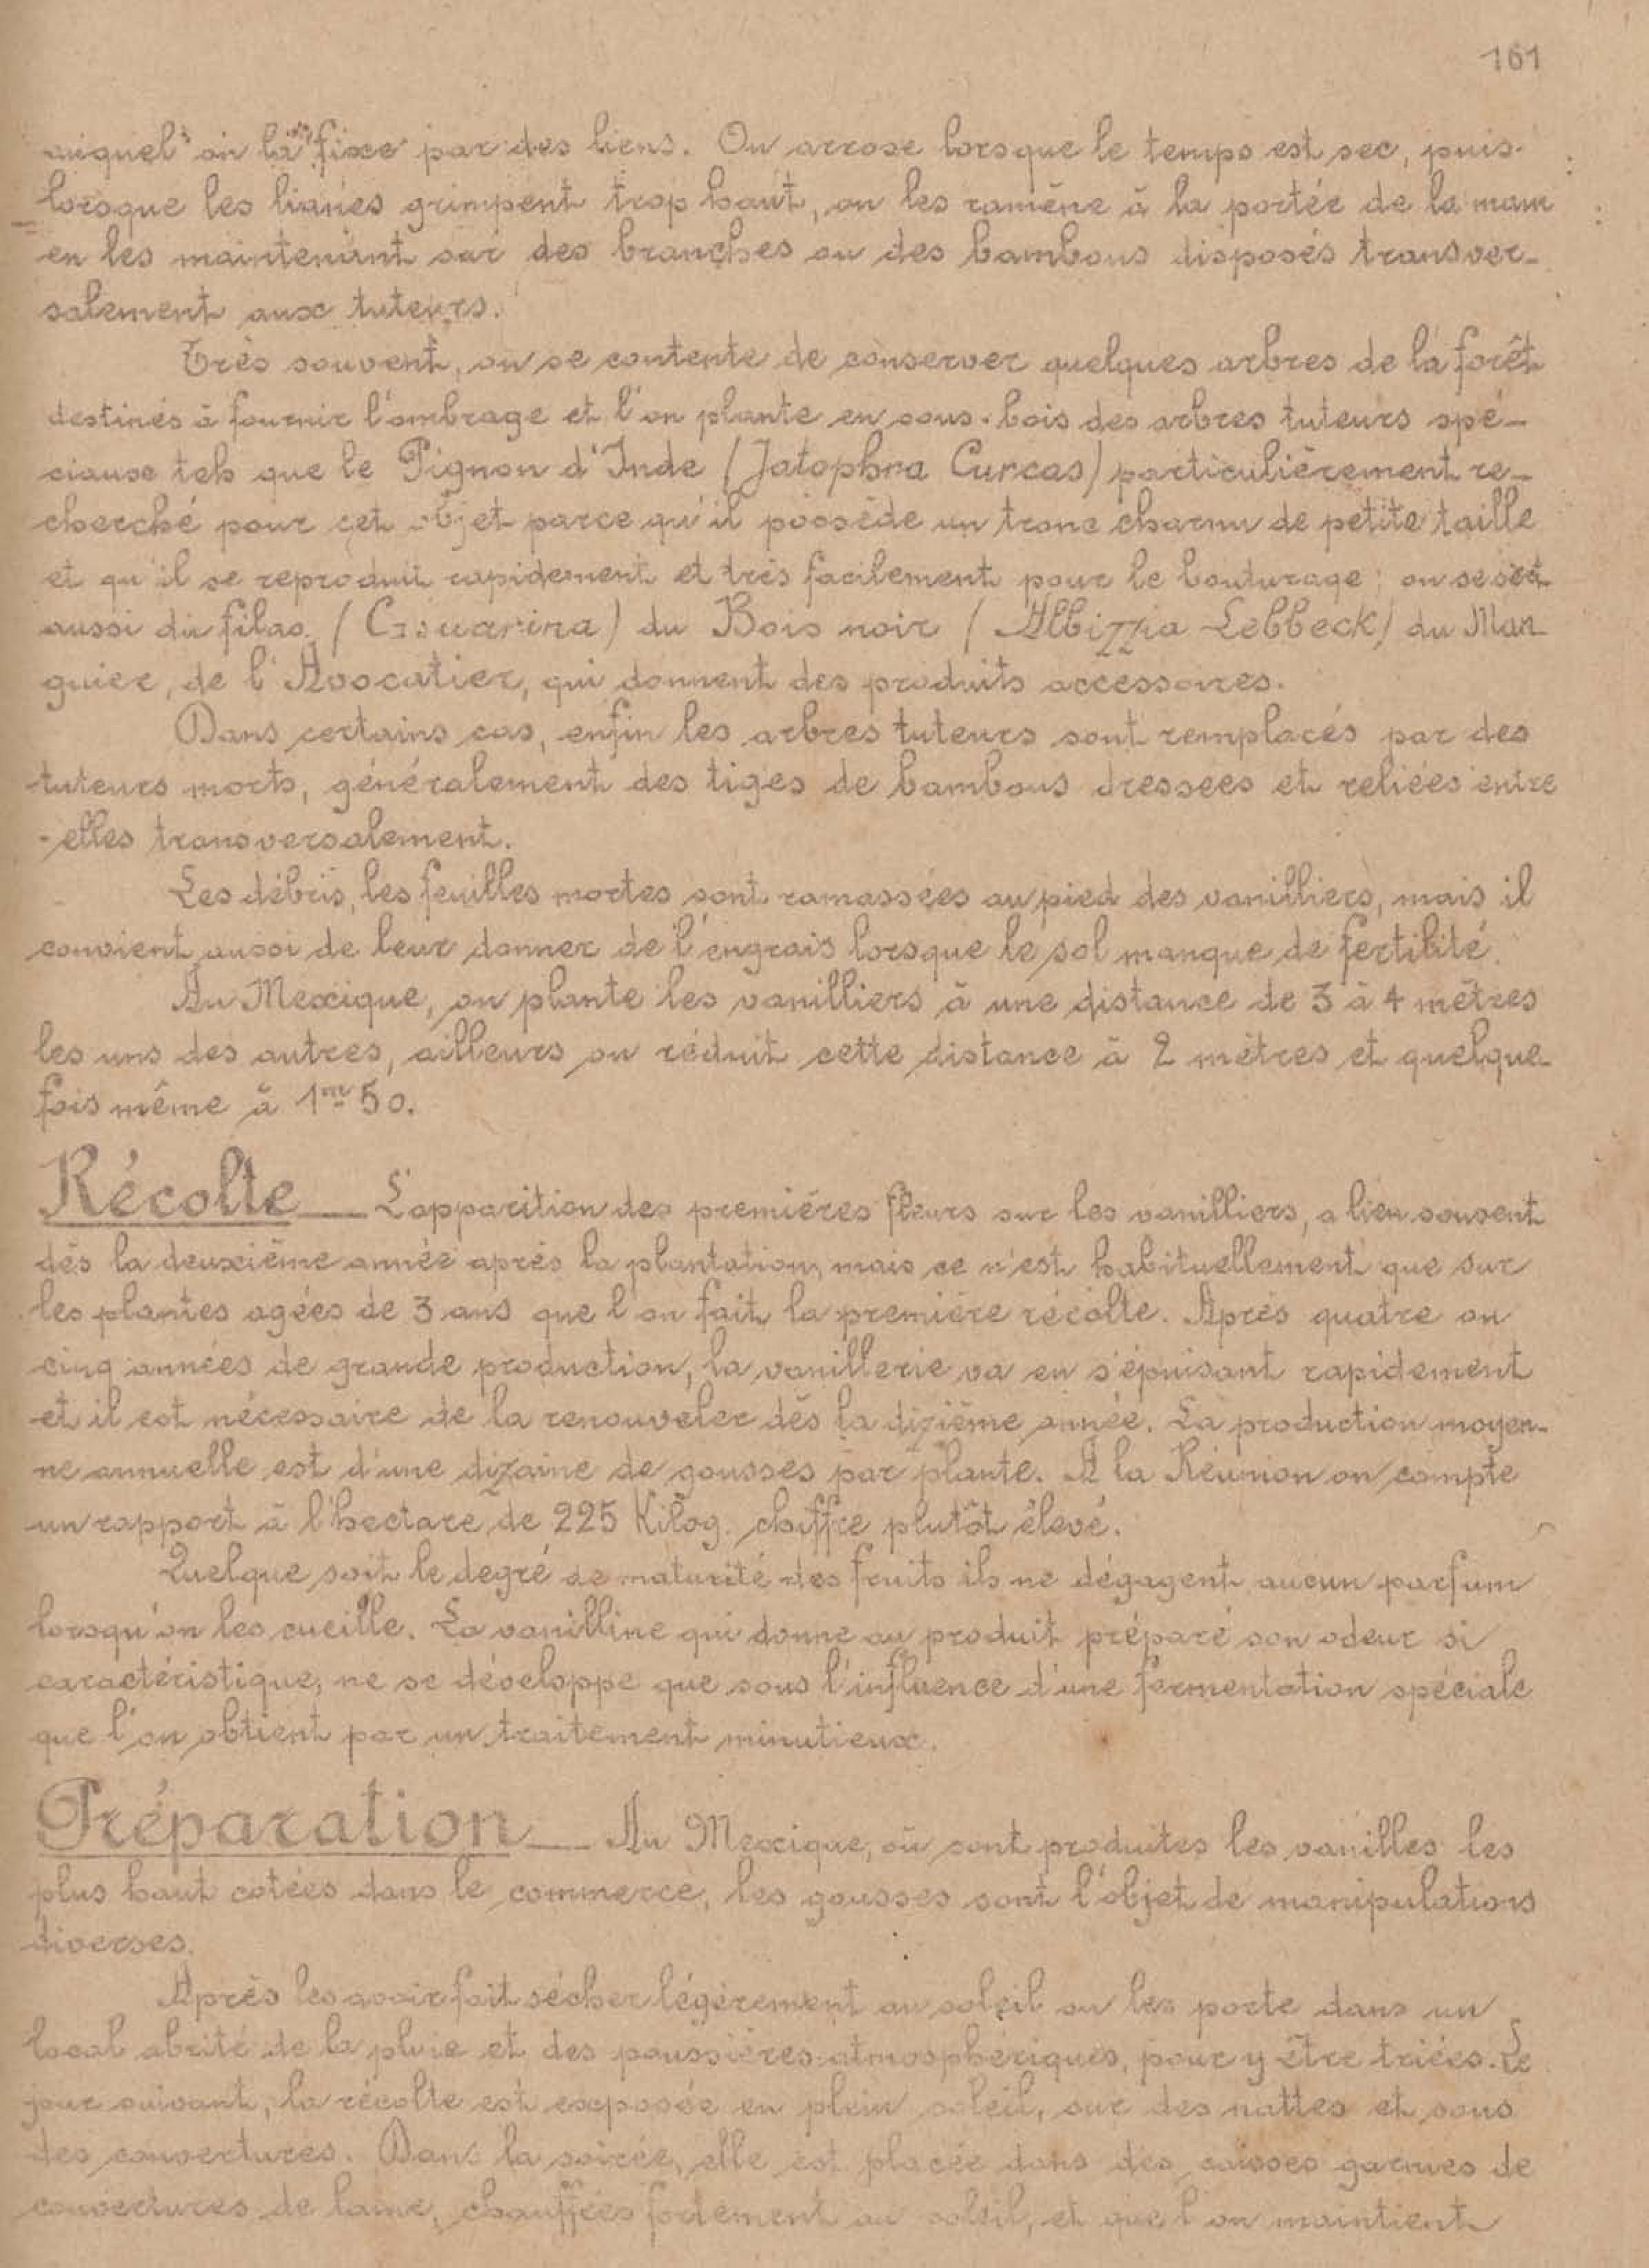 161
auquel on la fixe par des liens. On arrose lorsque le temps est sec, puis
lorsque les lianes grimpent trop haut, on les ramène à la portée de la main
en les maintenant sur des branches ou des bambous disposés transver-
salement aux tuteurs.
Très souvent, on se contente de conserver quelques arbres de la forêt
destinés à fournir l'ombrage et l'on plante en sous-bois des arbres tuteurs spé-
ciaux tels que le Pignon d'Inde (Jatophra Curcas) particulièrement re-
cherché pour cet objet parce qu'il possède un tronc charnu de petite taille
et qu'il se reproduit rapidement et très facilement pour le bouturage; on se sert
aussi du filao (Casuarina) du Bois noir (Albizzia Lebbeck) du Man
guier, de l'Avocatier, qui donnent des produits accessoires.
Dans certains cas, enfin les arbres tuteurs sont remplacés par des
tuteurs morts, généralement des tiges de bambous dressées et reliées entre
-elles transversalement.
Les débris, les feuilles mortes sont ramassées au pied des vanilliers, mais il
convient aussi de leur donner de l'engrais lorsque le sol manque de fertilité.
Au Mexique, on plante les vanilliers à une distance de 3 à 4 mètres
les uns des autres, ailleurs on réduit cette distance à 2 mètres et quelque-
fois même à 1m 50.
Récolte — L'apparition des premières fleurs sur les vanilliers, a lieu souvent
dès la deuxième année après la plantation, mais ce n'est habituellement que sur
les plantes agées de 3 ans que l'on fait la première récolte. Après quatre ou
cinq années de grande production, la vanillerie va en s'épuisant rapidement
et il est nécessaire de la renouveler dès la dizième année. La production moyen-
ne annuelle est d'une dizaine de gousses par plante. A la Réunion on compte
un rapport à l'hectare de 225 Kilog. chiffre plutôt élevé.
Quelque soit le degré de maturité des fruits ils ne dégagent aucun parfum
lorsqu'on les cueille. La vanilline qui donne au produit préparé son odeur si
caractéristique, ne se développe que sous l'influence d'une fermentation spéciale
que l'on obtient par un traitement minutieux.
Préparation — Au Mexique, où sont produites les vanilles les
plus haut cotées dans le commerce, les gousses sont l'objet de manipulations
diverses.
Après les avoir fait sécher légèrement au soleil on les porte dans un
local abrité de la pluie et des poussières atmosphériques, pour y être triées. Le
jour suivant, la récolte est exposée en plein soleil, sur des nattes et sous
des couvertures. Dans la soirée, elle est placée dans des caisses garnies de
couvertures de laine, chauffées fortement au soleil, et que l'on maintient